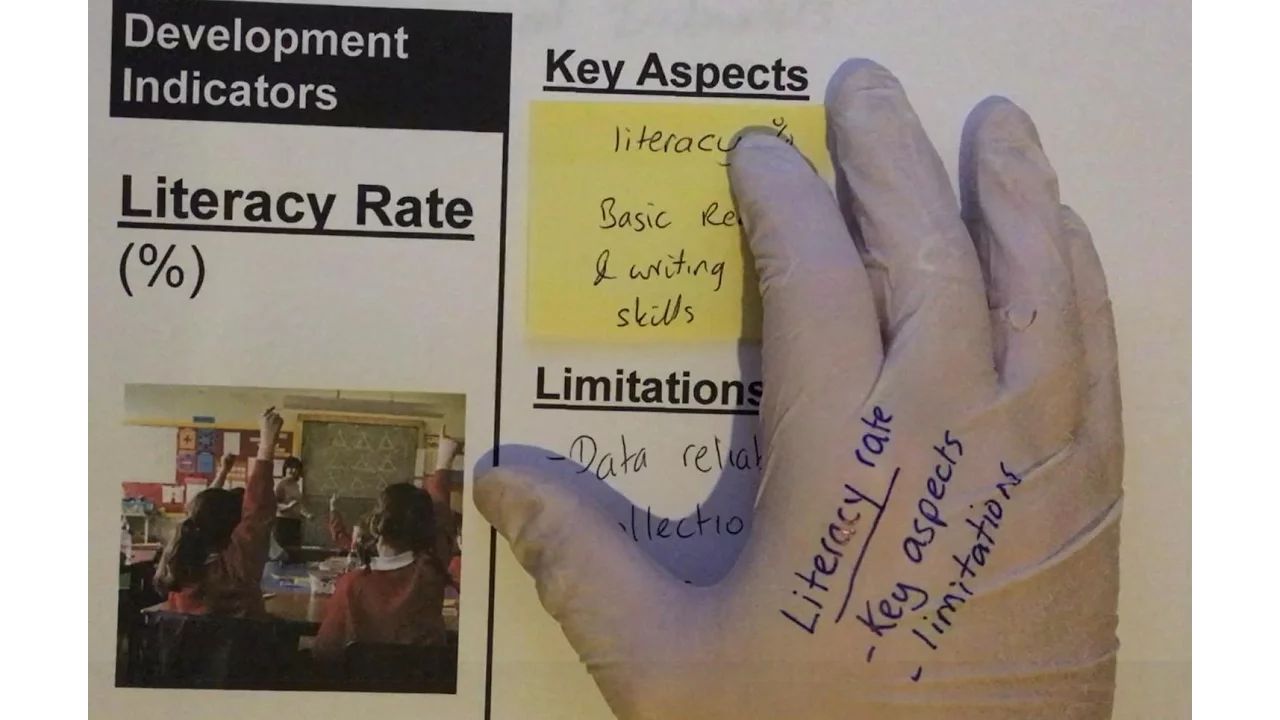 Development
Indicators
Literacy Rate
(%)
Key Aspects
literacy %
Basic
& writing
skills
Limitations
- Data
Literacy rate
- Key aspects
- limitations